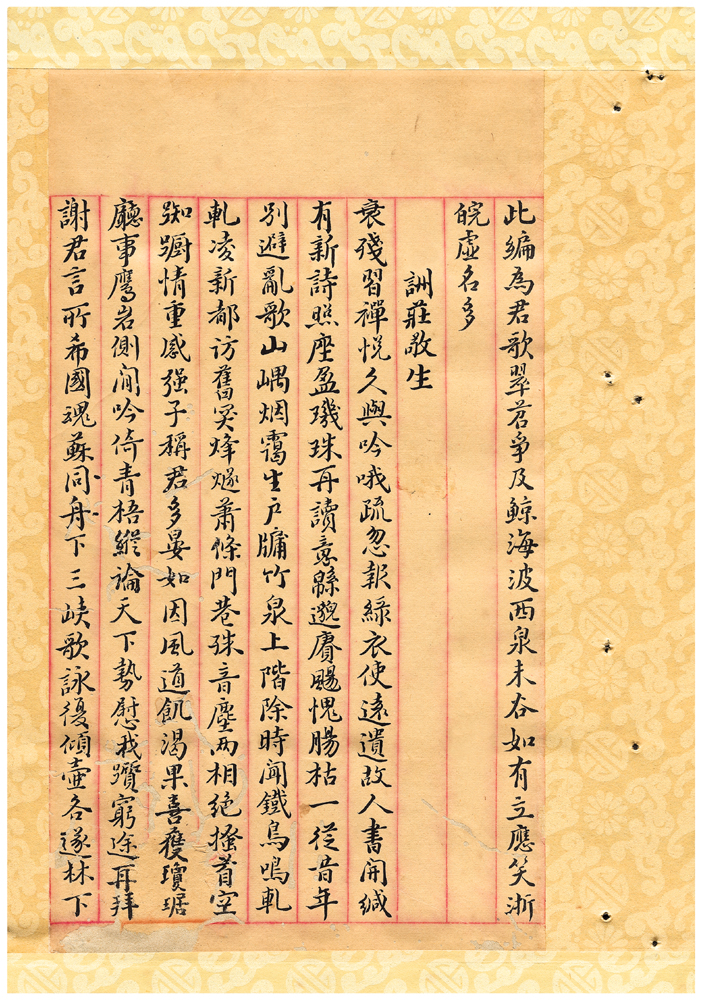 此編為君歌翠苕爭及鯨海波西泉未谷如有立應笑浙
皖虛名多
詶莊敬生
衰殘習禪悅久與吟哦疏忽報綠衣使遠遺故人書開緘
有新詩照座盈璣珠再讀意緜邈賡颺愧腸枯一從昔年
別避亂歌山嵎烟靄生戶牖竹泉上階除時聞鐵鳥鳴軋
軋凌新都訪舊哭烽燧蕭條門巷殊音塵兩相絕搔首空
踟躕情重感强子稱君多晏如因風道飢渴果喜獲瓊琚
廳事鷹岩側閒吟倚青梧縱論天下勢慰我躓窮途再拜
謝君言所希國魂蘇同舟下三峽歌詠復傾壺各遂林下